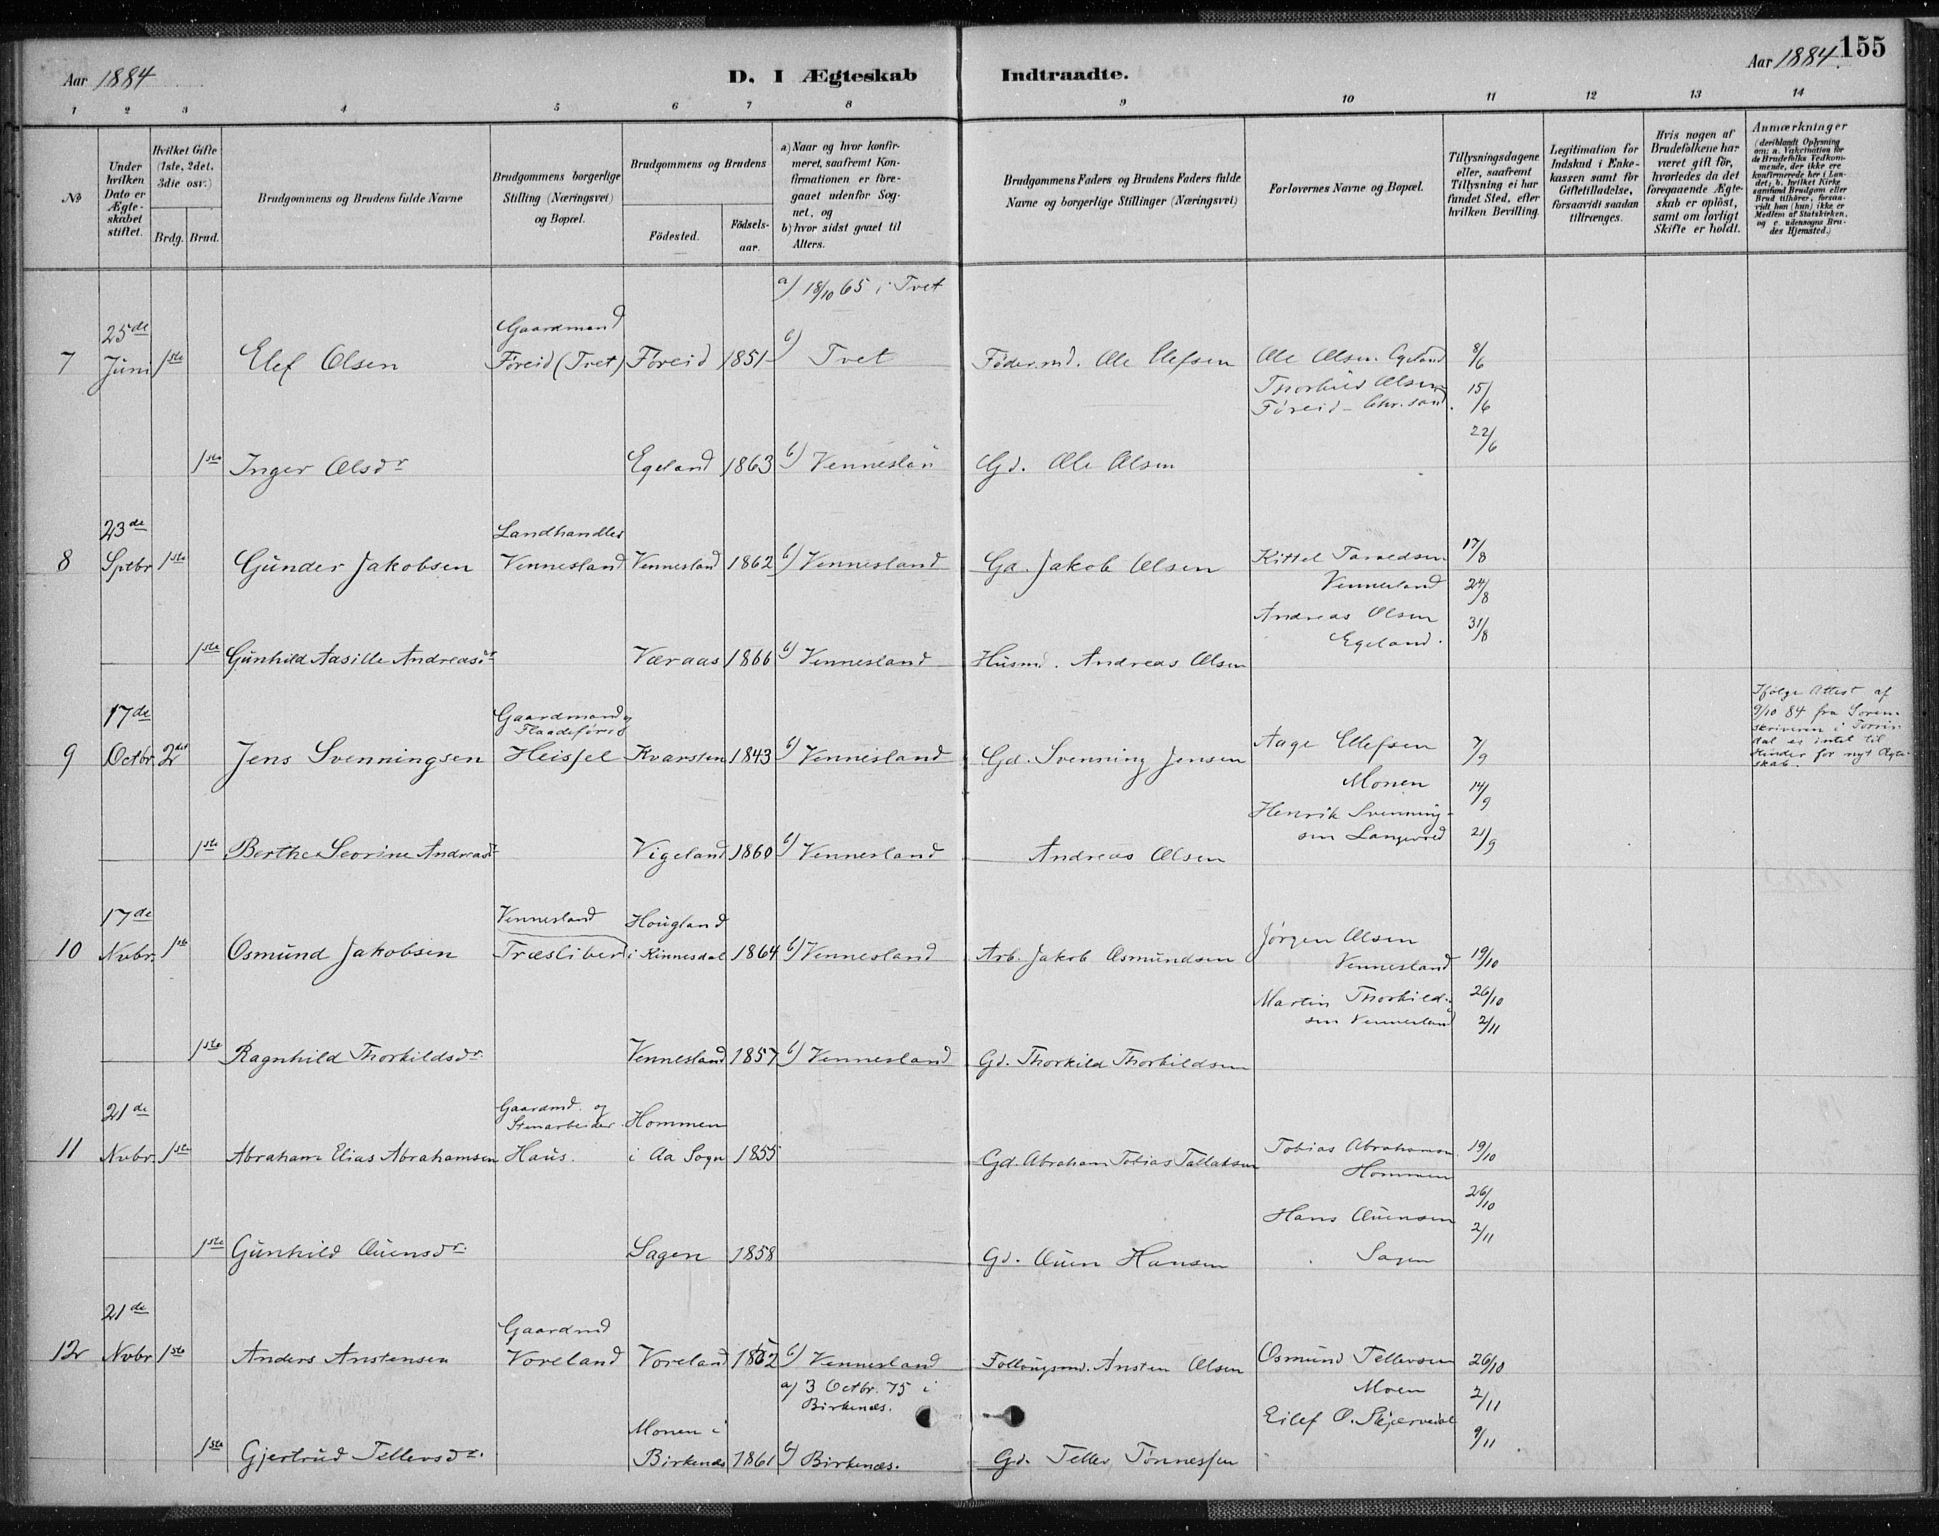 155
Aar 1884
D. I Ægteskab
Indtraadte.
Aar 1884.
1 2 3 4 5 6 7 8 9 10 11 12 13 14
No
Under hvilken Dato er Ægteskabet stiftet.
Hvilket Gifte (1ste, 2det, 3die osv.)
Brdg. Brud.
Brudgommens og Brudens fulde Navne
Brudgommens borgerlige Stilling (Næringsvei) og Bopæl.
Brudgommens og Brudens
Födested.
Födselsaar.
a) Naar og hvor konfirmeret, saafremt Konfirmationen er foregaaet udenfor Sognet, og
b) hvor sidst gaaet til Alters.
Brudgommens Faders og Brudens Faders fulde Navne og borgerlige Stillinger (Næringsvei)
Forlovernes Navne og Bopæl.
Tillysningsdagene eller, saafremt Tillysning ei har fundet Sted, efter hvilken Bevilling.
Legitimation for Indskud i Enkekassen samt for Giftetilladelse, forsaavidt saadan tiltrænges.
Hvis nogen af Brudefolkene har været gift för, hvorledes da det foregaaende Ægteskab er oplöst, samt om lovligt Skifte er holdt.
Anmærkninger
(deriblandt Oplysning om: a. Vakcination for de Brudefolks Vedkommende, der ikke ere konfirmerede her i Landet; b. hvilket Kirkesamfund Brudgom eller Brud tilhörer, forsaavidt han (hun) ikke er Medlem af Statskirken, og c. udensogns Brudes Hjemsted.)
a) 18/10 65 i Tvet
25de Gaardmand
7 Juni 1ste Elef Olsen Föreid (Tvet) Föreid 1851 b) Tvet Födermd. Ole Elefsen Ole Olsen Egeland 8/6
Olsen 15/6
Föreid - Chr.sand.
22/6
1ste Inger Olsdr Egeland 1863 b) Vennesland Gd. Ole Olsen
23de Landhandler
8 Sptbr 1ste Gunder Jakobsen Vennesland Vennesland 1862 b) Vennesland Gd. Jakob Olsen Kittel 17/8
Vennesland 24/8
Andreas Olsen 31/8
Egeland.
1ste Gunhild Aasille Andreasdr Væraas 1866 b) Vennesland Husmd. Andreas Olsen
17de Gaardmand og Flaadefører
9 Octbr. 2det Jens Svenningsen Heissel Kvarsten 1843 b) Vennesland Gd. Svenning Jensen Aage Ellefsen 7/9
Monen 14/9
Henrik Svenningsen 21/9
Ifølge Attest af 9/10 84 fra Sorenskriveren i er intet til Hinder for nyt Ægteskab.
1ste Berthe Seorine Andreasdr Vigeland 1860 b) Vennesland Andreas Olsen
17de Vennesland Hougland
10 Nvbr. 1ste Osmund Jakobsen Træsliber i 1864 b) Vennesland Arb. Jakob Osmundsen Jørgen Olsen
Vennesland 19/10
Martin Thorkildsen Vennesland 26/10
2/11
1ste Ragnhild Thorkildsdr. Vennesland 1857 b) Vennesland Gd. Thorkild Thorkildsen
21de Gaardmd. og Stenarbeider. Hommen
11 Nvbr. 1ste Abraham Elias Abrahamsen Haus. i Aa Sogn 1855 Gd. Abraham Tobias Tallaksen Tobias Abrahamsen 19/10
Hommen
26/10
Hans Ouensen 2/11
1ste Gunhild Ouensdr. Sagen 1858 Gd. Ouen Hansen Sagen
21de Gaardmd
12 Nvbr 1ste Anders Anstensen Voreland Voreland 1862 b) Vennesland Ansten Olsen Osmund Tellevsen 26/10
a) 3 Octbr. 75 i Birkenæs.
Moen 2/11
Eilef O. 9/11
Monen i
1ste Gjertrud Tellevsdr. Birkenæs 1861 b) Birkenæs. Gd. Tellev Tønnessen